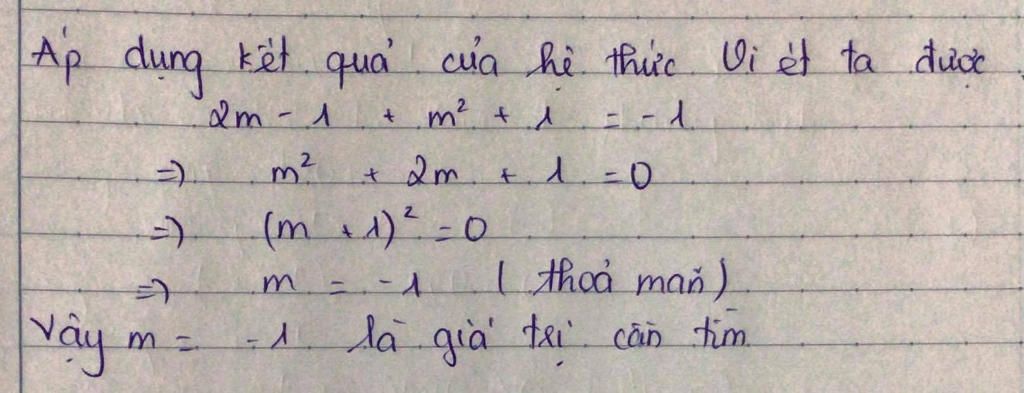 Áp dụng kết quả của hệ thức Vi ét ta được
2m - 1 + m² + 1 = -1
=) m² + 2m + 1 = 0
=) (m + 1)² = 0
=) m = -1 (thoả mãn)
Vậy m = -1 là giá trị cần tìm